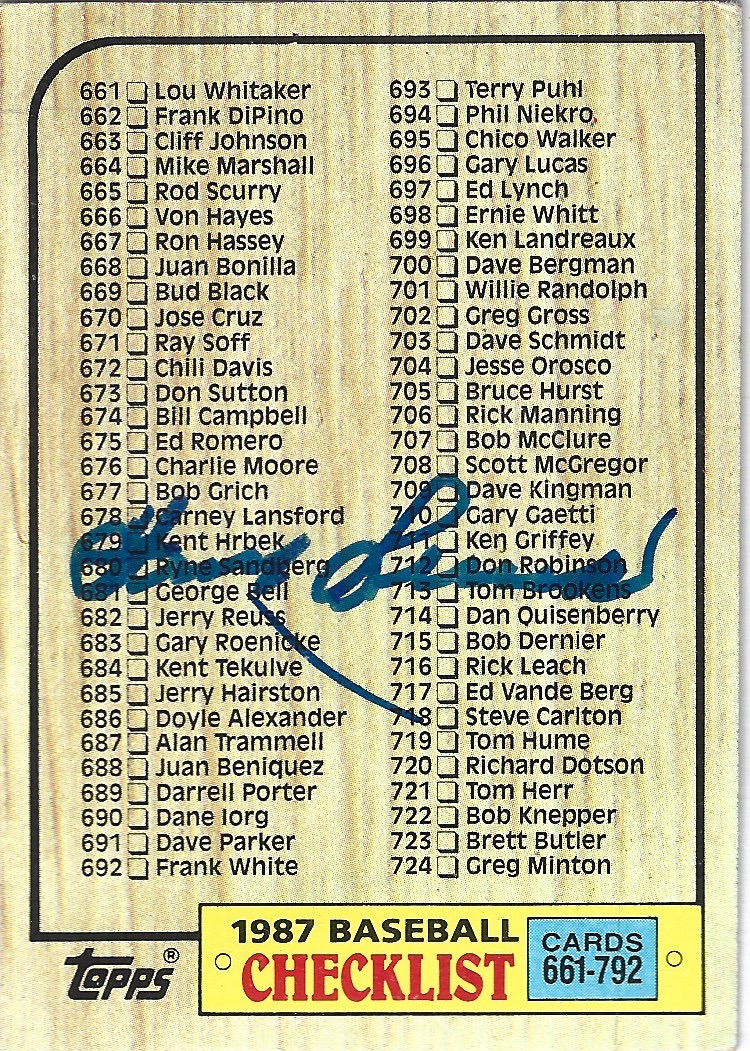 661 Lou Whitaker
662 Frank DiPino
663 Cliff Johnson
664 Mike Marshall
665 Rod Scurry
666 Von Hayes
667 Ron Hassey
668 Juan Bonilla
669 Bud Black
670 Jose Cruz
671 Ray Soff
672 Chili Davis
673 Don Sutton
674 Bill Campbell
675 Ed Romero
676 Charlie Moore
677 Bob Grich
678 Carney Lansford
679 Kent Hrbek
680 Ryne Sandberg
681 George Bell
682 Jerry Reuss
683 Gary Roenicke
684 Kent Tekulve
685 Jerry Hairston
686 Doyle Alexander
687 Alan Trammell
688 Juan Beniquez
689 Darrell Porter
690 Dane Iorg
691 Dave Parker
692 Frank White
693 Terry Puhl
694 Phil Niekro
695 Chico Walker
696 Gary Lucas
697 Ed Lynch
698 Ernie Whitt
699 Ken Landreaux
700 Dave Bergman
701 Willie Randolph
702 Greg Gross
703 Dave Schmidt
704 Jesse Orosco
705 Bruce Hurst
706 Rick Manning
707 Bob McClure
708 Scott McGregor
709 Dave Kingman
710 Gary Gaetti
711 Ken Griffey
712 Don Robinson
713 Tom Brookens
714 Dan Quisenberry
715 Bob Dernier
716 Rick Leach
717 Ed Vande Berg
718 Steve Carlton
719 Tom Hume
720 Richard Dotson
721 Tom Herr
722 Bob Knepper
723 Brett Butler
724 Greg Minton
Topps®
1987 BASEBALL
CHECKLIST
CARDS
661-792